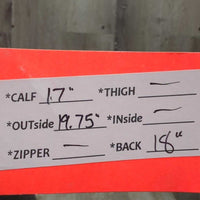 *CALF 17" *THIGH —
*OUTside 19.75" *INside —
*ZIPPER — *BACK 18"